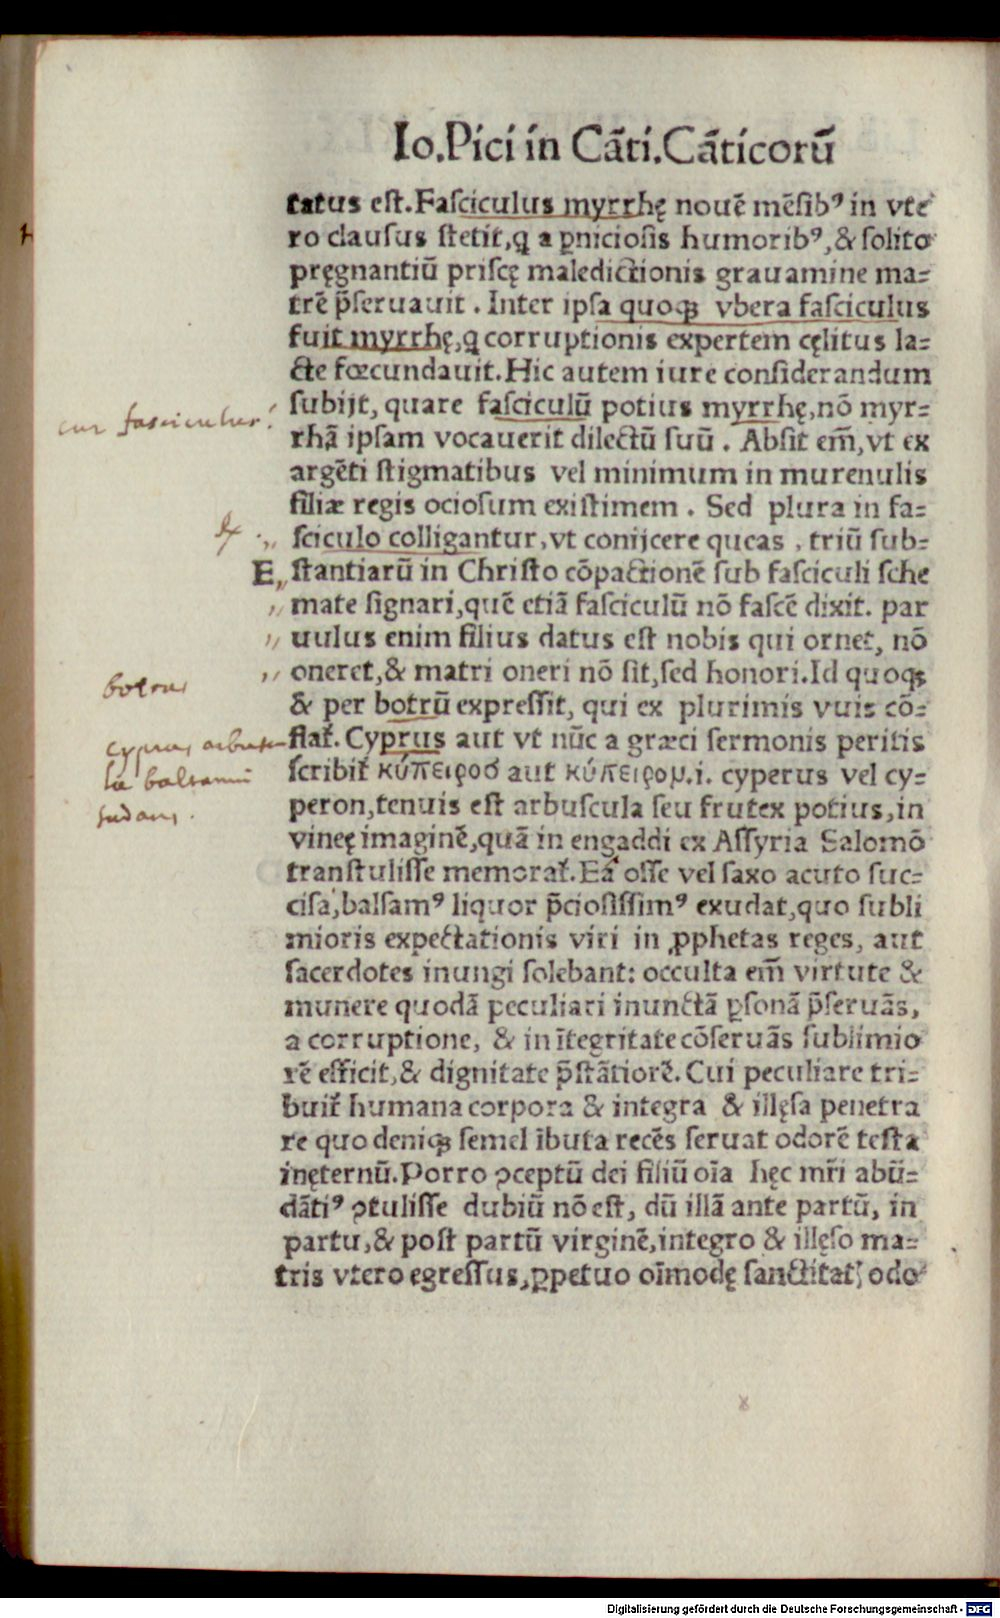 Io.Pici in Cãti.Cãticorũ
tatus est.Fasciculus myrrhę nouẽ mẽsibꝰ in vte
ro clausus stetit,ꝗ a ꝑniciosis humoribꝰ,& solito
pręgnantiũ priscę maledictionis grauamine ma⸗
trẽ p̃seruauit . Inter ipsa quoqꝫ vbera fasciculus
fuit myrrhę,ꝗ corruptionis expertem cęlitus la⸗
cte fœcundauit.Hic autem iure considerandum
subijt, quare fasciculũ potius myrrhę,nõ myr⸗
cur fasciculus?
rhã ipsam vocauerit dilectũ suũ . Absit em̃,vt ex
argẽti stigmatibus vel minimum in murenulis
filiæ regis ociosum existimem . Sed plura in fa⸗
sciculo colligantur,vt conijcere queas , triũ sub⸗
E stantiarũ in Christo cõpactionẽ sub fasciculi sche
mate signari,quẽ etiã fasciculũ nõ fascẽ dixit. par
uulus enim filius datus est nobis qui ornet, nõ
oneret,& matri oneri nõ sit,sed honori.Id quoqꝫ
botrus
& per botrũ expressit, qui ex plurimis vuis cõ⸗
flat̃. Cyprus aut vt nũc a græci sermonis peritis
cyprus arbuscu
la balsamũ
sudans.
scribit̃ κύπειρος aut κύπειρον.i. cyperus vel cy⸗
peron,tenuis est arbuscula seu frutex potius,in
vineę imaginẽ,quã in engaddi ex Assyria Salomõ
transtulisse memorat̃.Ea osse vel saxo acuto suc⸗
cisa,balsamꝰ liquor p̃ciosissimꝰ exudat,quo subli
mioris expectationis viri in ꝓphetas reges, aut
sacerdotes inungi solebant: occulta em̃ virtute &
munere quodã peculiari inunctã ꝑsonã p̃seruãs,
a corruptione, & in ĩtegritate cõseruãs sublimio
rẽ efficit,& dignitate p̃stãtiorẽ. Cui peculiare tri⸗
buit̃ humana corpora & integra & illęsa penetra
re quo deniqꝫ semel ĩbuta recẽs seruat odorẽ testa
inęternũ.Porro ꝯceptũ dei filiũ oĩa hęc mr̃i abũ⸗
dãtiꝰ ꝯtulisse dubiũ nõ est, dũ illã ante partũ, in
partu,& post partũ virginẽ,integro & illęso ma⸗
tris vtero egressus,ꝑpetuo oĩmodę sanctitatꝭ odo
Digitalisierung gefördert durch die Deutsche Forschungsgemeinschaft - DFG